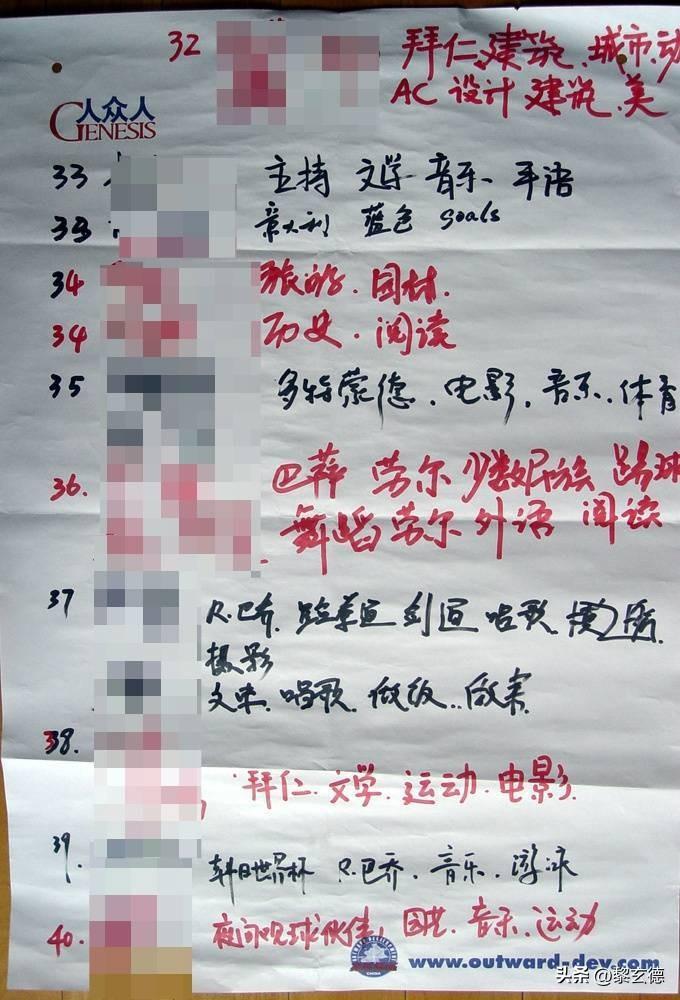 32 拜仁 建筑、城市、动
AC 设计 建筑、美
人众人
GENESIS
33 主持 文学 音乐 手语
33 意大利 蓝色 goals
34 旅游、园林
34 历史、阅读
35 多特蒙德、电影、音乐、体育
36. 巴萨 劳尔 少数民族 踢球
舞蹈 劳尔 外语 阅读
37 R.巴乔、跆拳道 剑道 唱歌、
摄影
唱歌、做饭、
38. 拜仁、文学、运动、电影
39. 韩日世界杯 R.巴乔、音乐、游泳
40. 夜间观球伙伴, 音乐、运动
CHINA
www.outward-dev.com
头条 @黎玄德